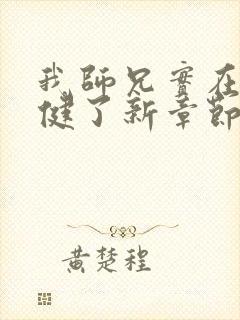 我師兄實在
健了新章節
黃楚程